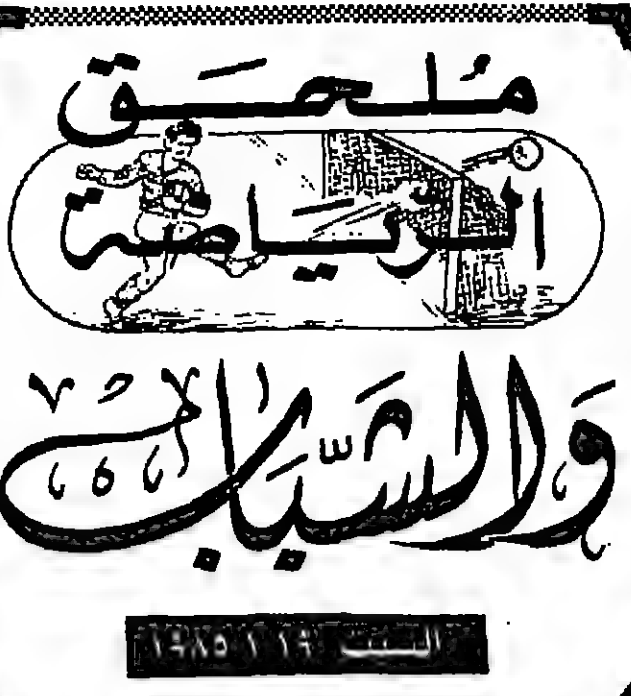 مُلحق
الرّياضة
وَالشّبَاب
السبت ١٩ ١ ١٩٨٥